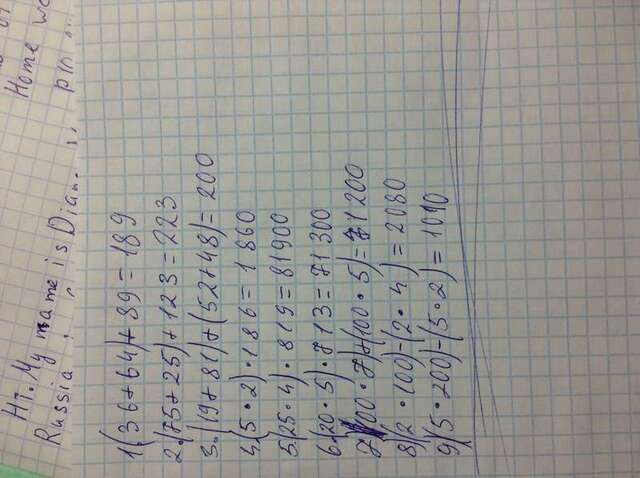 Hi. My name is Diana
Home
Russia
1(36+64)+89=189
2.(75+25)+123=223
3.(19+81)+(52+48)=200
4.(5·2)·186=1860
5.(25·4)·819=81900
6.(20·5)·713=71300
7)(100·7)+(100·5)=1200
8)(2·100)-(2·4)=2080
9)(5·200)-(5·2)=1010